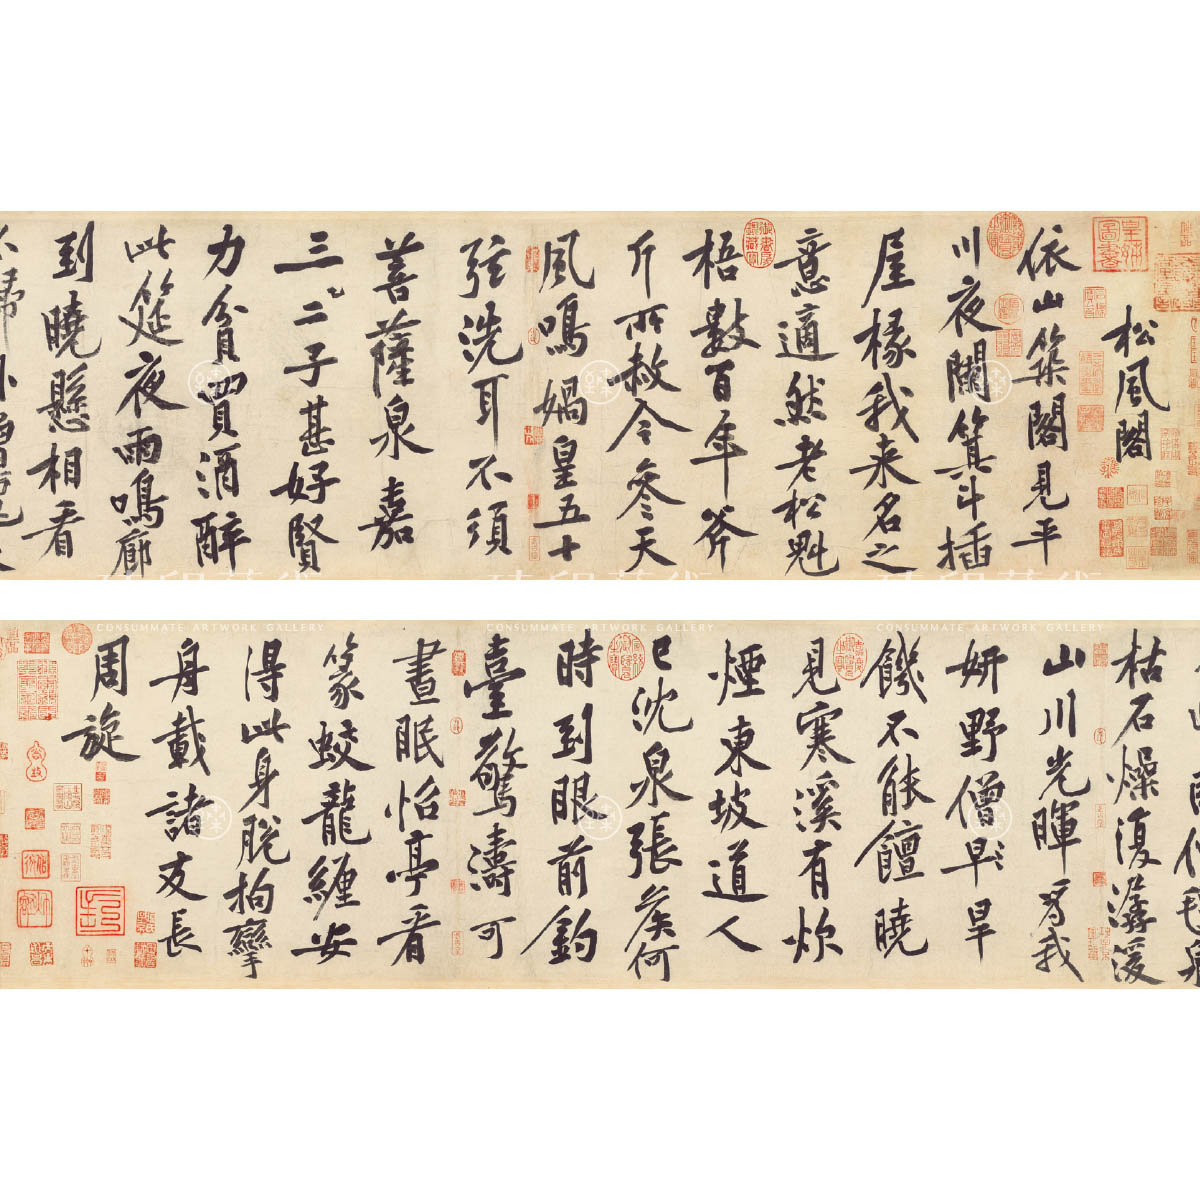 松風閣
依山築閣見平
川夜闌箕斗插
屋椽我来名之
意適然老松魁
梧數百年斧
斤所赦今參天
風鳴媧皇五十
弦洗耳不須
菩薩泉嘉
三二子甚好賢
力貧買酒醉
此筵夜雨鳴廊
到曉懸相看
歸卧
枯石燥復潺湲
山川光暉為我
妍野僧早旱
饑不能饘曉
見寒溪有炊
煙東坡道人
已沈泉張矦何
時到眼前釣
臺驚濤可
晝眠怡亭看
篆蛟龍纏安
得此身脫拘攣
舟載諸友長
周旋
CONSUMMATE ARTWORK GALLERY
CONSUMMATE ARTWORK GALLERY
CONSUMMATE ARTWORK GALLERY